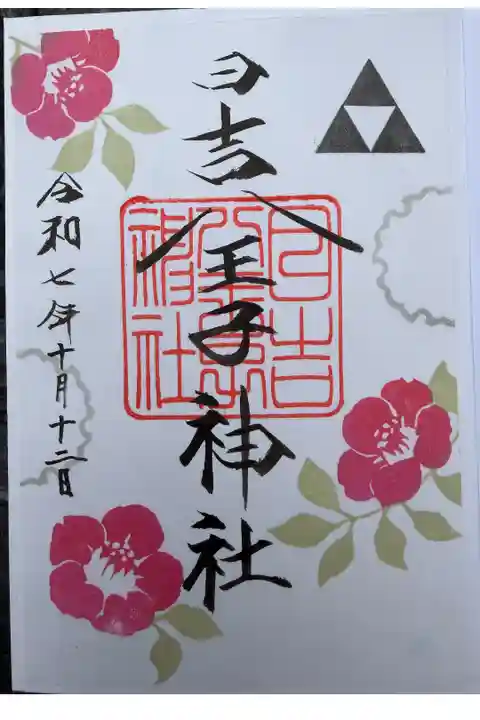 日吉八王子神社
日吉
八王子
神社
令和七年十月十二日